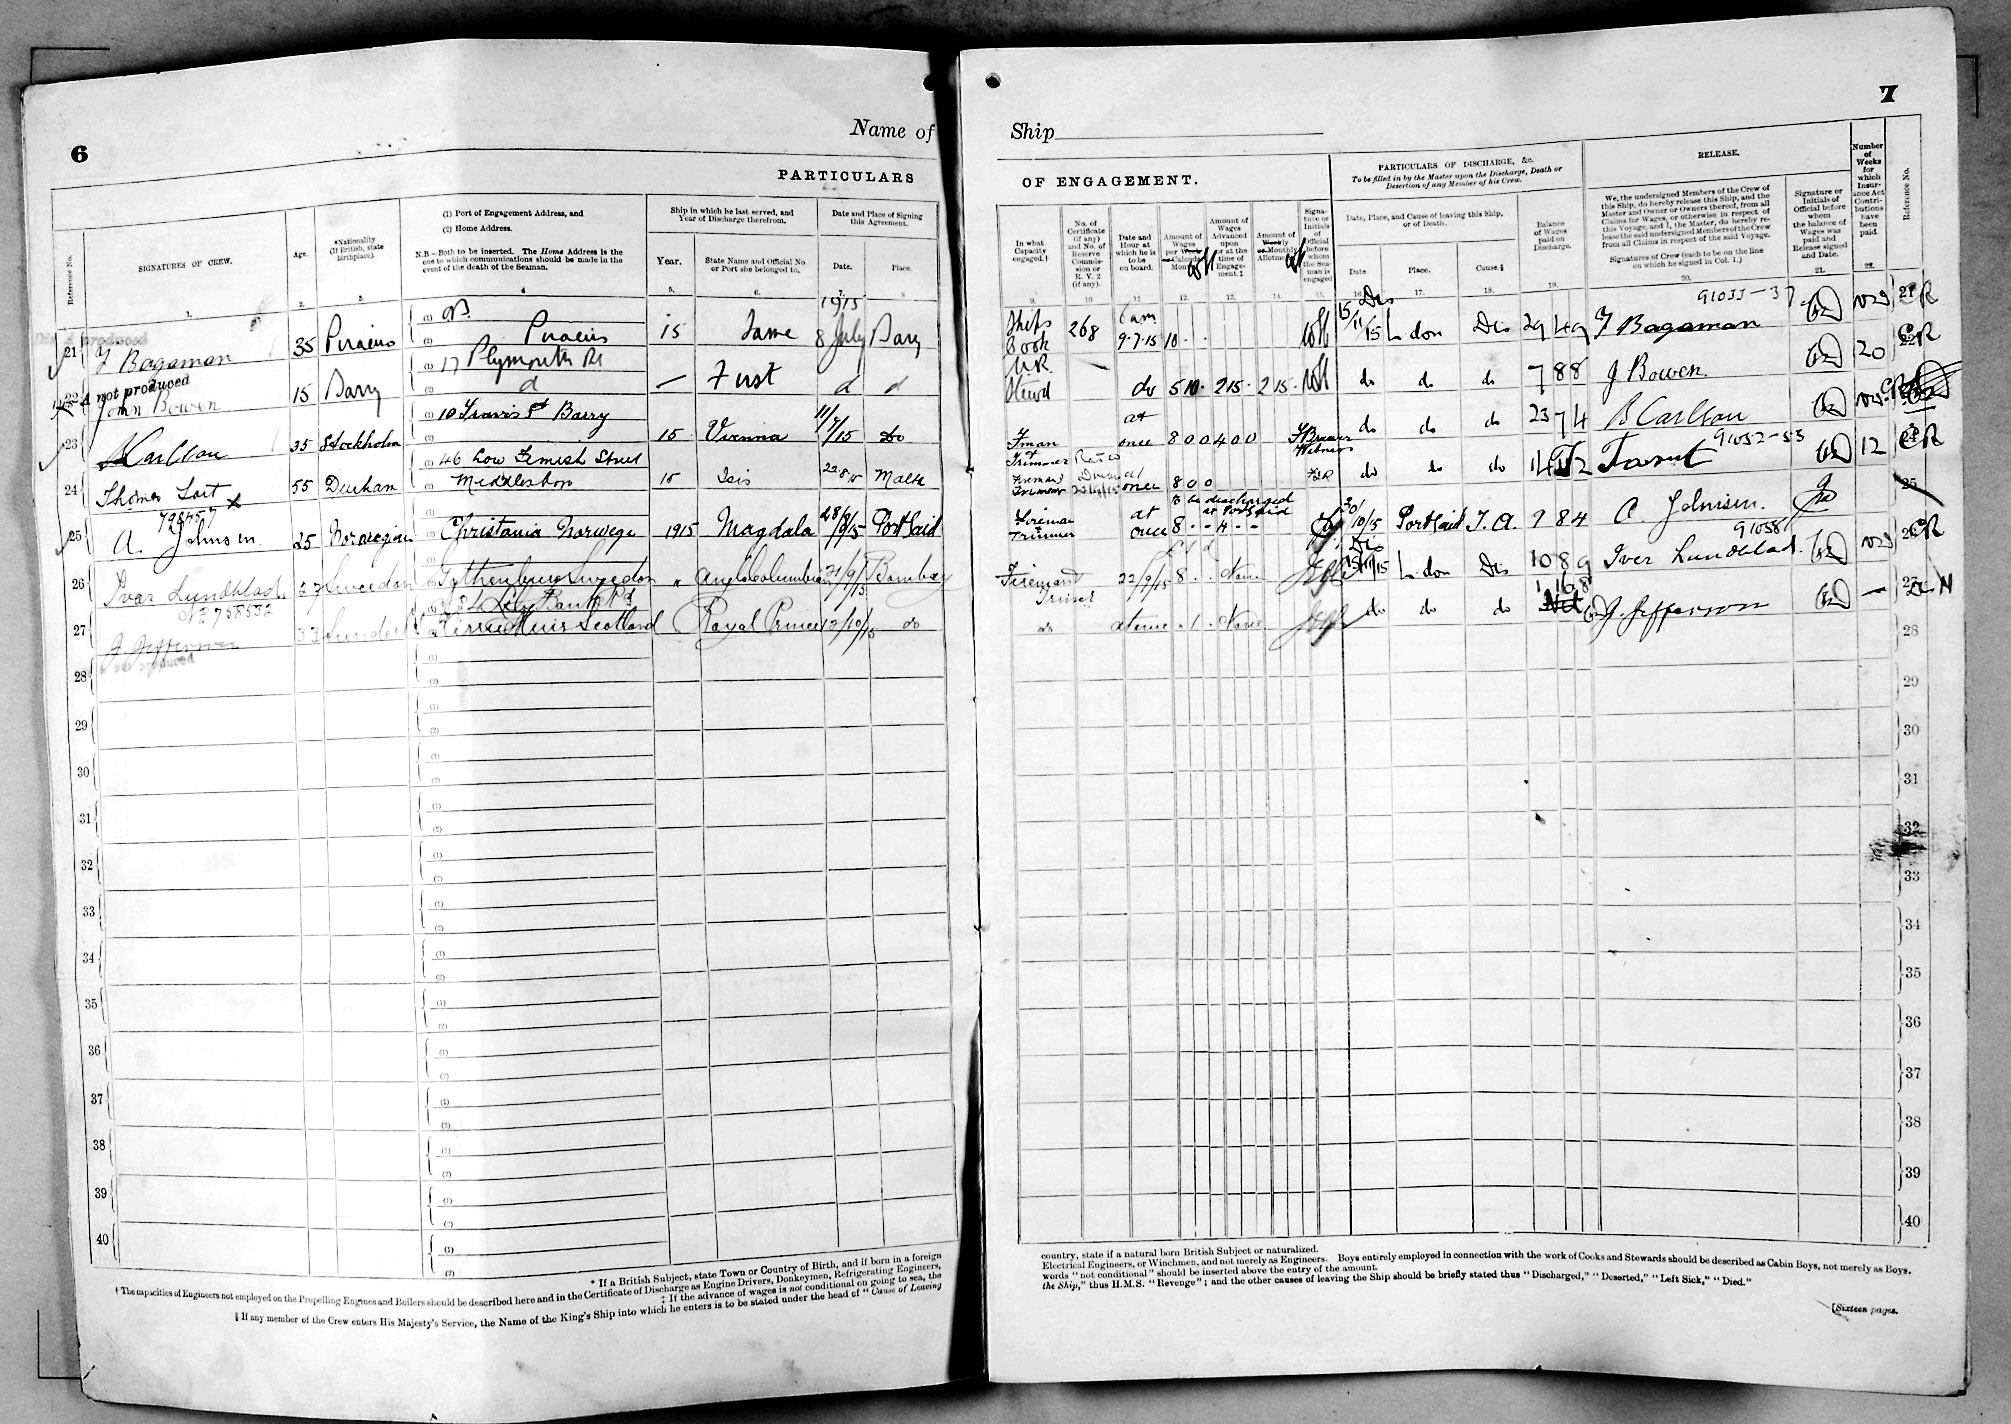 6
Name of
PARTICULARS
Reference No.
SIGNATURES OF CREW.
Age.
*Nationality
(If British, state
birthplace).
(1) Port of Engagement Address, and
(2) Home Address.
N.B.—Both to be inserted. The Home Address is the
one to which communications should be made in the
event of the death of the Seaman.
Ship in which he last served, and
Year of Discharge therefrom.
Year.
State Name and Official No.
or Port she belonged to.
Date and Place of Signing
this Agreement.
Date.
Place.
1. 2. 3. 4 5. 6. 7. 8.
1915
21 Bagaman 35 Piraeus Piraeus 15 Same 8 July Barry
not produced
22 John Bowen 15 Barry 17 Plymouth Rd — First d d
23 Carlson 35 Stockholm 10 Travis St Barry 15 Vienna 11/7/15 Do
24 Thomas Tart 55 Durham 46 Low Street Middlesbro 15 Isis 22 8 15 Malta
798457
25 A. Johnsen. 25 Norwegian Christania Norwege 1915 Magdala 28/8/15 Port Said
26 Ivar Lundblad. 27 Sweedon Gothenburg Sweedon " Anglo Columbian 21/9/15 Bombay
No 758532
27 J. Jefferson 33 Lily Bank Rd Kirriemuir Scotland Royal Prince 12/10/15 do
28
29
30
31
32
33
34
35
36
37
38
39
40
* If a British Subject, state Town or Country of Birth, and if born in a foreign
† The capacities of Engineers not employed on the Propelling Engines and Boilers should be described here and in the Certificate of Discharge as Engine Drivers, Donkeymen, Refrigerating Engineers,
‡ If the advance of wages is not conditional on going to sea, the
§ If any member of the Crew enters His Majesty's Service, the Name of the King's Ship into which he enters is to be stated under the head of "Cause of Leaving
7
Ship
OF ENGAGEMENT.
In what
Capacity
engaged.†
No. of
Certificate
(if any)
and No. of
Reserve
Commis-
sion or
R. V. 2
(if any).
Date and
Hour at
which he is
to be
on board.
Amount of
Wages
per Week
Calendar
Month
Amount of
Wages
Advanced
upon
or at the
time of
Engage-
ment.‡
Amount of
Weekly
or Monthly
Allotment
Signa-
ture or
Initials
of
Official
before
whom
the Sea-
man is
engaged
PARTICULARS OF DISCHARGE, &c.
To be filled in by the Master upon the Discharge, Death or
Desertion of any Member of his Crew.
Date, Place, and Cause of leaving this Ship,
or of Death.
Date
Place.
Cause.§
Balance
of Wages
paid on
Discharge.
RELEASE.
We, the undersigned Members of the Crew of
this Ship, do hereby release this Ship, and the
Master and Owner or Owners thereof, from all
Claims for Wages, or otherwise in respect of
this Voyage, and I, the Master, do hereby re-
lease the said undersigned Members of the Crew
from all Claims in respect of the said Voyage.
Signatures of Crew (each to be on the line
on which he signed in Col. 1.)
Signature or
Initials of
Official before
whom
the balance of
Wages was
paid and
Release signed
and Date.
Number
of
Weeks
for
which
Insur-
ance Act
Contri-
butions
have
been
paid.
Reference No.
9. 10 11 12. 13. 14. 15. 16. 17. 18. 19. 20. 21. 22.
91033-37
Ships Cook 268 6 am 9.7.15 10 . . 15/11/15 Ldon Dis 29 4 9 Bagaman 21
Stewd do 5 10 . 2 15 . 2 15 . do do do 7 8 8 J Bowen 20
Fman at once 8 0 0 4 0 0 Witness do do do 23 7 4 B Carlson
91052-53
Fireman Trimmer at once 8 0 0 do do do Tart 12 24
to be discharged at Port Said
Fireman + Trimmer at once 8 - - 4 - - 30/10/15 Port Said 9 8 4 A. Johnsen. 25
91058
Fireman + Trimer 22/9/15 8 . . None Dis 15/11/15 Ldon Dis 10 8 9 Iver Lundblad.
do at once . 1 . None do do do 1 16 8 J. Jefferson — 27
28
29
30
31
32
33
34
35
36
37
38
39
40
country, state if a natural born British Subject or naturalized.
Electrical Engineers, or Winchmen, and not merely as Engineers. Boys entirely employed in connection with the work of Cooks and Stewards should be described as Cabin Boys, not merely as Boys.
words "not conditional" should be inserted above the entry of the amount.
the Ship," thus H.M.S. "Revenge"; and the other causes of leaving the Ship should be briefly stated thus "Discharged," "Deserted," "Left Sick," "Died."
[Sixteen pages.